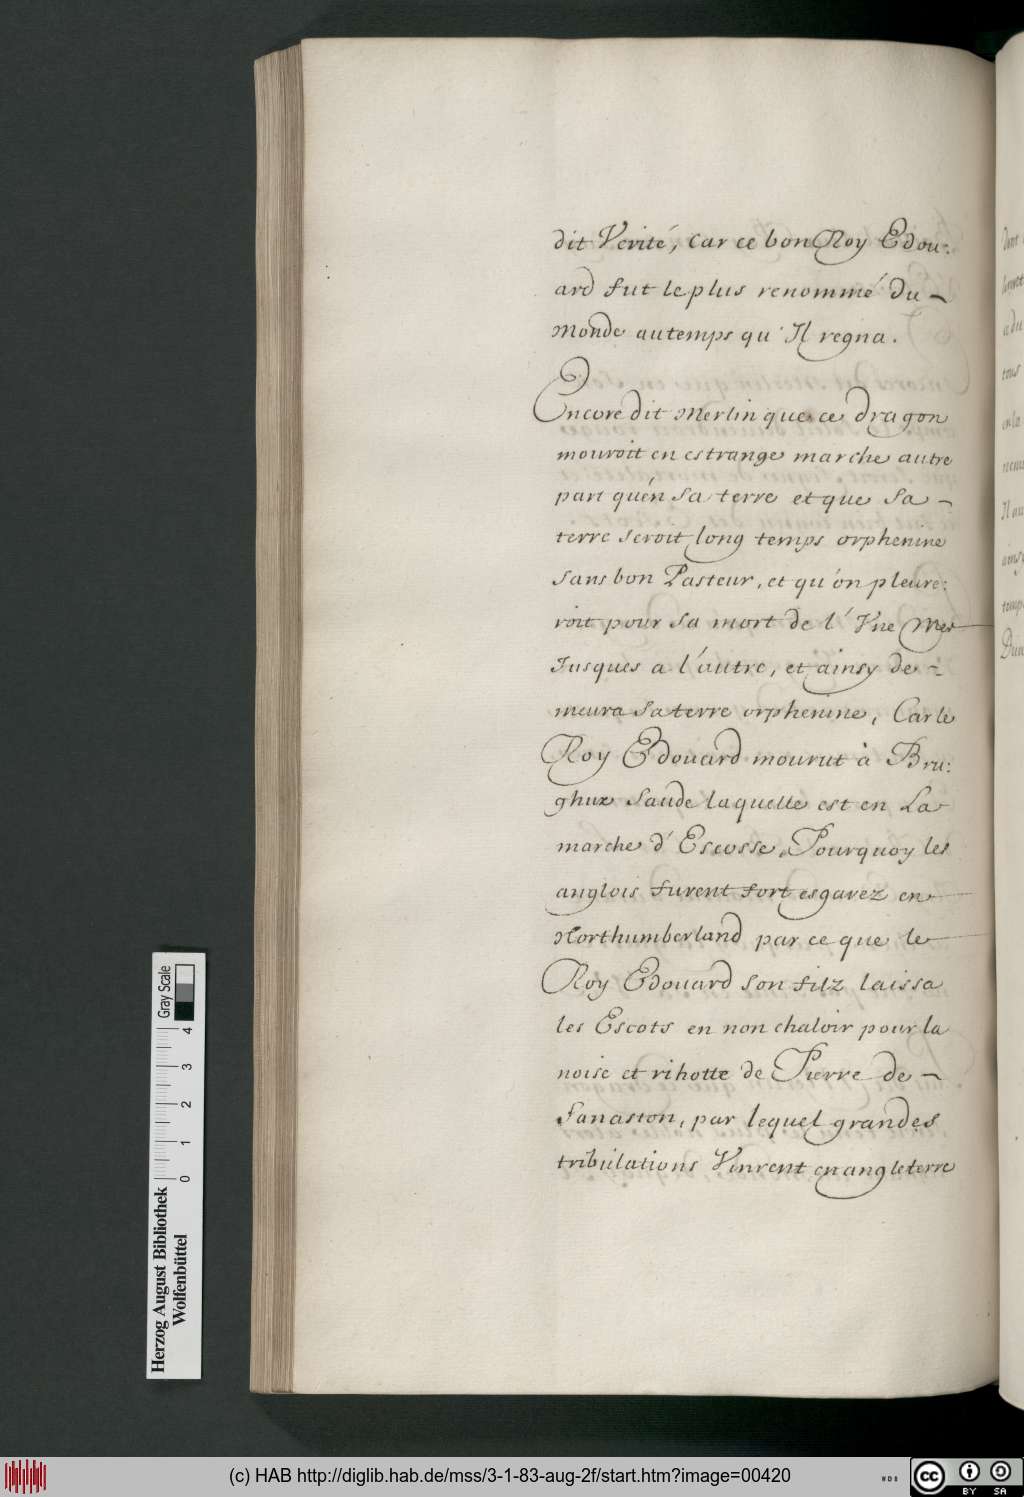 dit Verité, Car ce bon Roy Edou:
ard fut le plus renommé du -
Monde au temps qu'Il regna.
Encore dit Merlin que ce dragon
mouroit en estrange marche autre
part qu'én sa terre et que sa -
terre seroit long temps orphenine
sans bon Pasteur, et qu'on pleure:
roit pour sa mort de l'Vne Mer
Jusques a l'autre, et ainsy de -
meura sa terre orphenine, Car le
Roy Edouard mourut à Bru:
ghur saude laquelle est en La
marche d'Escosse, Pourquoy les
anglois furent fort esgarez en
Northumberland par ce que le
Roy Edouard son filz laissa
les Escots en non chaloir pour la
noise et rihotte de Pierre de -
Fanaston, par lequel grandes
tribulations Vinrent en angleterre
Dont
tous
en la
Il au
Herzog August Bibliothek
Wolfenbüttel
0 1 2 3 4
Gray Scale
(c) HAB http://diglib.hab.de/mss/3-1-83-aug-2f/start.htm?image=00420
WDB
cc
BY SA